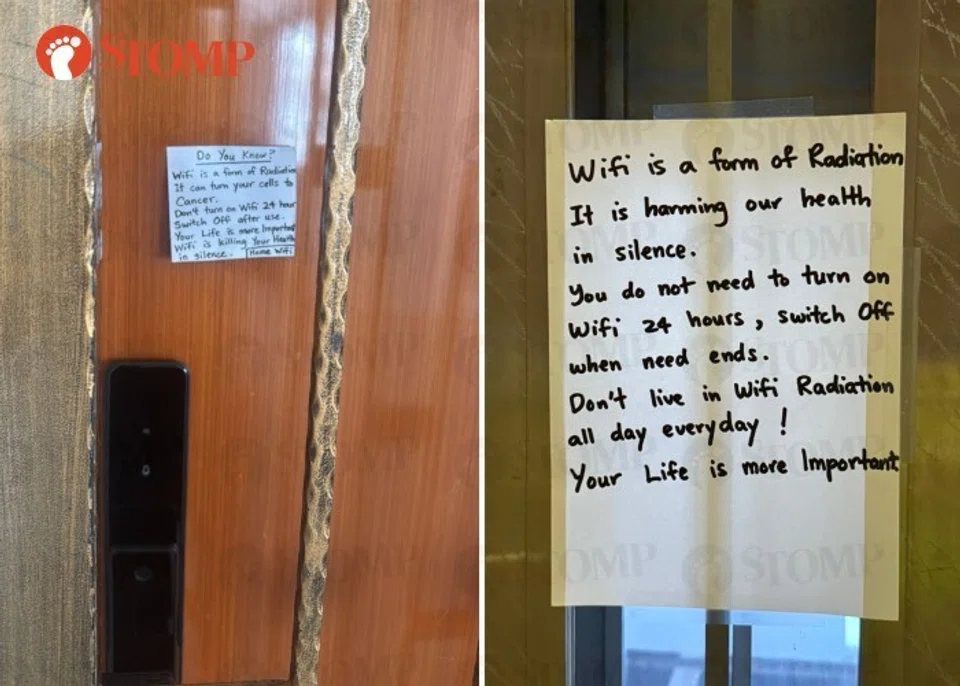 STOMP
Do You Know?
Wifi is a form of Radiation
It can turn your cells to
Cancer.
Don't turn on Wifi 24 hour
Switch Off after use.
Your Life is more Important
Wifi is killing Your Health
in silence. Home Wifi
Wifi is a form of Radiation
It is harming our health
in silence.
You do not need to turn on
Wifi 24 hours, switch Off
when need ends.
Don't live in Wifi Radiation
all day everyday!
Your Life is more Important
STOMP